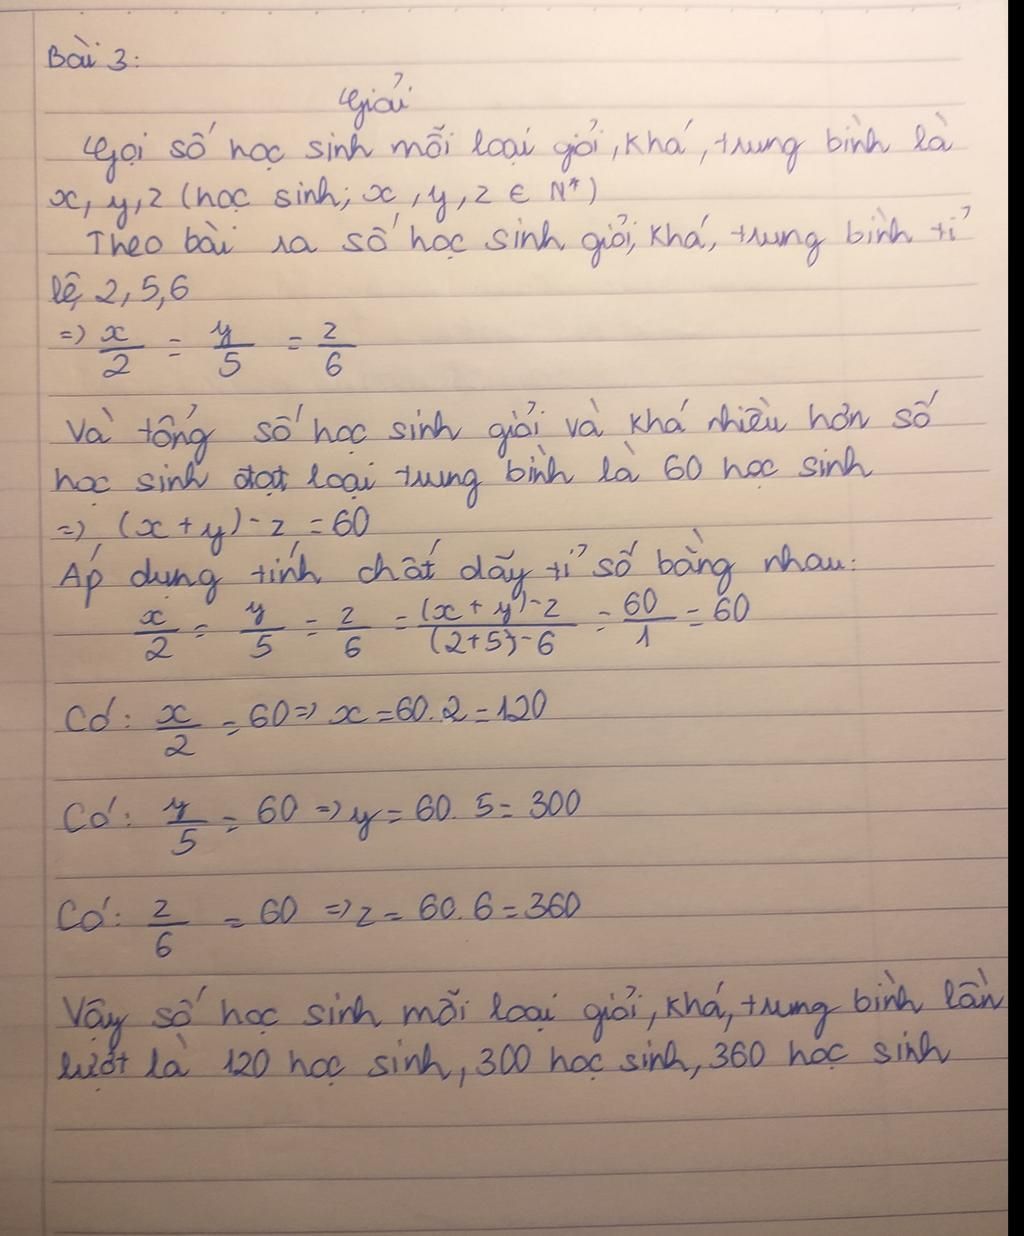 Bài 3:
Giải
Gọi số học sinh mỗi loại giỏi, khá, trung bình là
x, y, z (học sinh; x, y, z ∈ N*)
Theo bài ra số học sinh giỏi, khá, trung bình tỉ
lệ 2, 5, 6
=> x/2 = y/5 = z/6
Và tổng số học sinh giỏi và khá nhiều hơn số
học sinh đạt loại trung bình là 60 học sinh
=> (x + y) - z = 60
Áp dụng tính chất dãy tỉ số bằng nhau:
x/2 = y/5 = z/6 = (x + y) - z/(2+5) - 6 = 60/1 = 60
Có: x/2 = 60 => x = 60.2 = 120
Có: y/5 = 60 => y = 60.5 = 300
Có: z/6 = 60 => z = 60.6 = 360
Vậy số học sinh mỗi loại giỏi, khá, trung bình lần
lượt là 120 học sinh, 300 học sinh, 360 học sinh